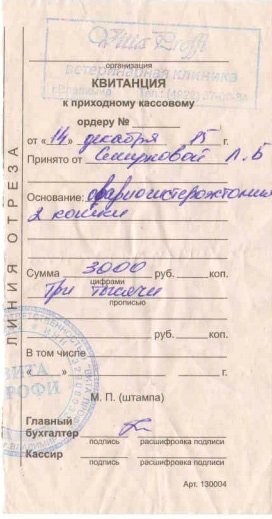 Vita Profi
ветеринарная клиника
г. Владимир
организация
КВИТАНЦИЯ
к приходному кассовому
ордеру №
от « 14 » декабря 15 г.
Принято от Смирновой Л.Б
Основание: овариогистерэктомия
2 кошки
Сумма 3000 руб. коп.
цифрами
три тысячи
прописью
руб. коп.
В том числе
« » г.
М. П. (штампа)
Главный
бухгалтер
подпись расшифровка подписи
Кассир
подпись расшифровка подписи
Арт. 130004
ЛИНИЯ ОТРЕЗА
ВИТА
ПРОФИ